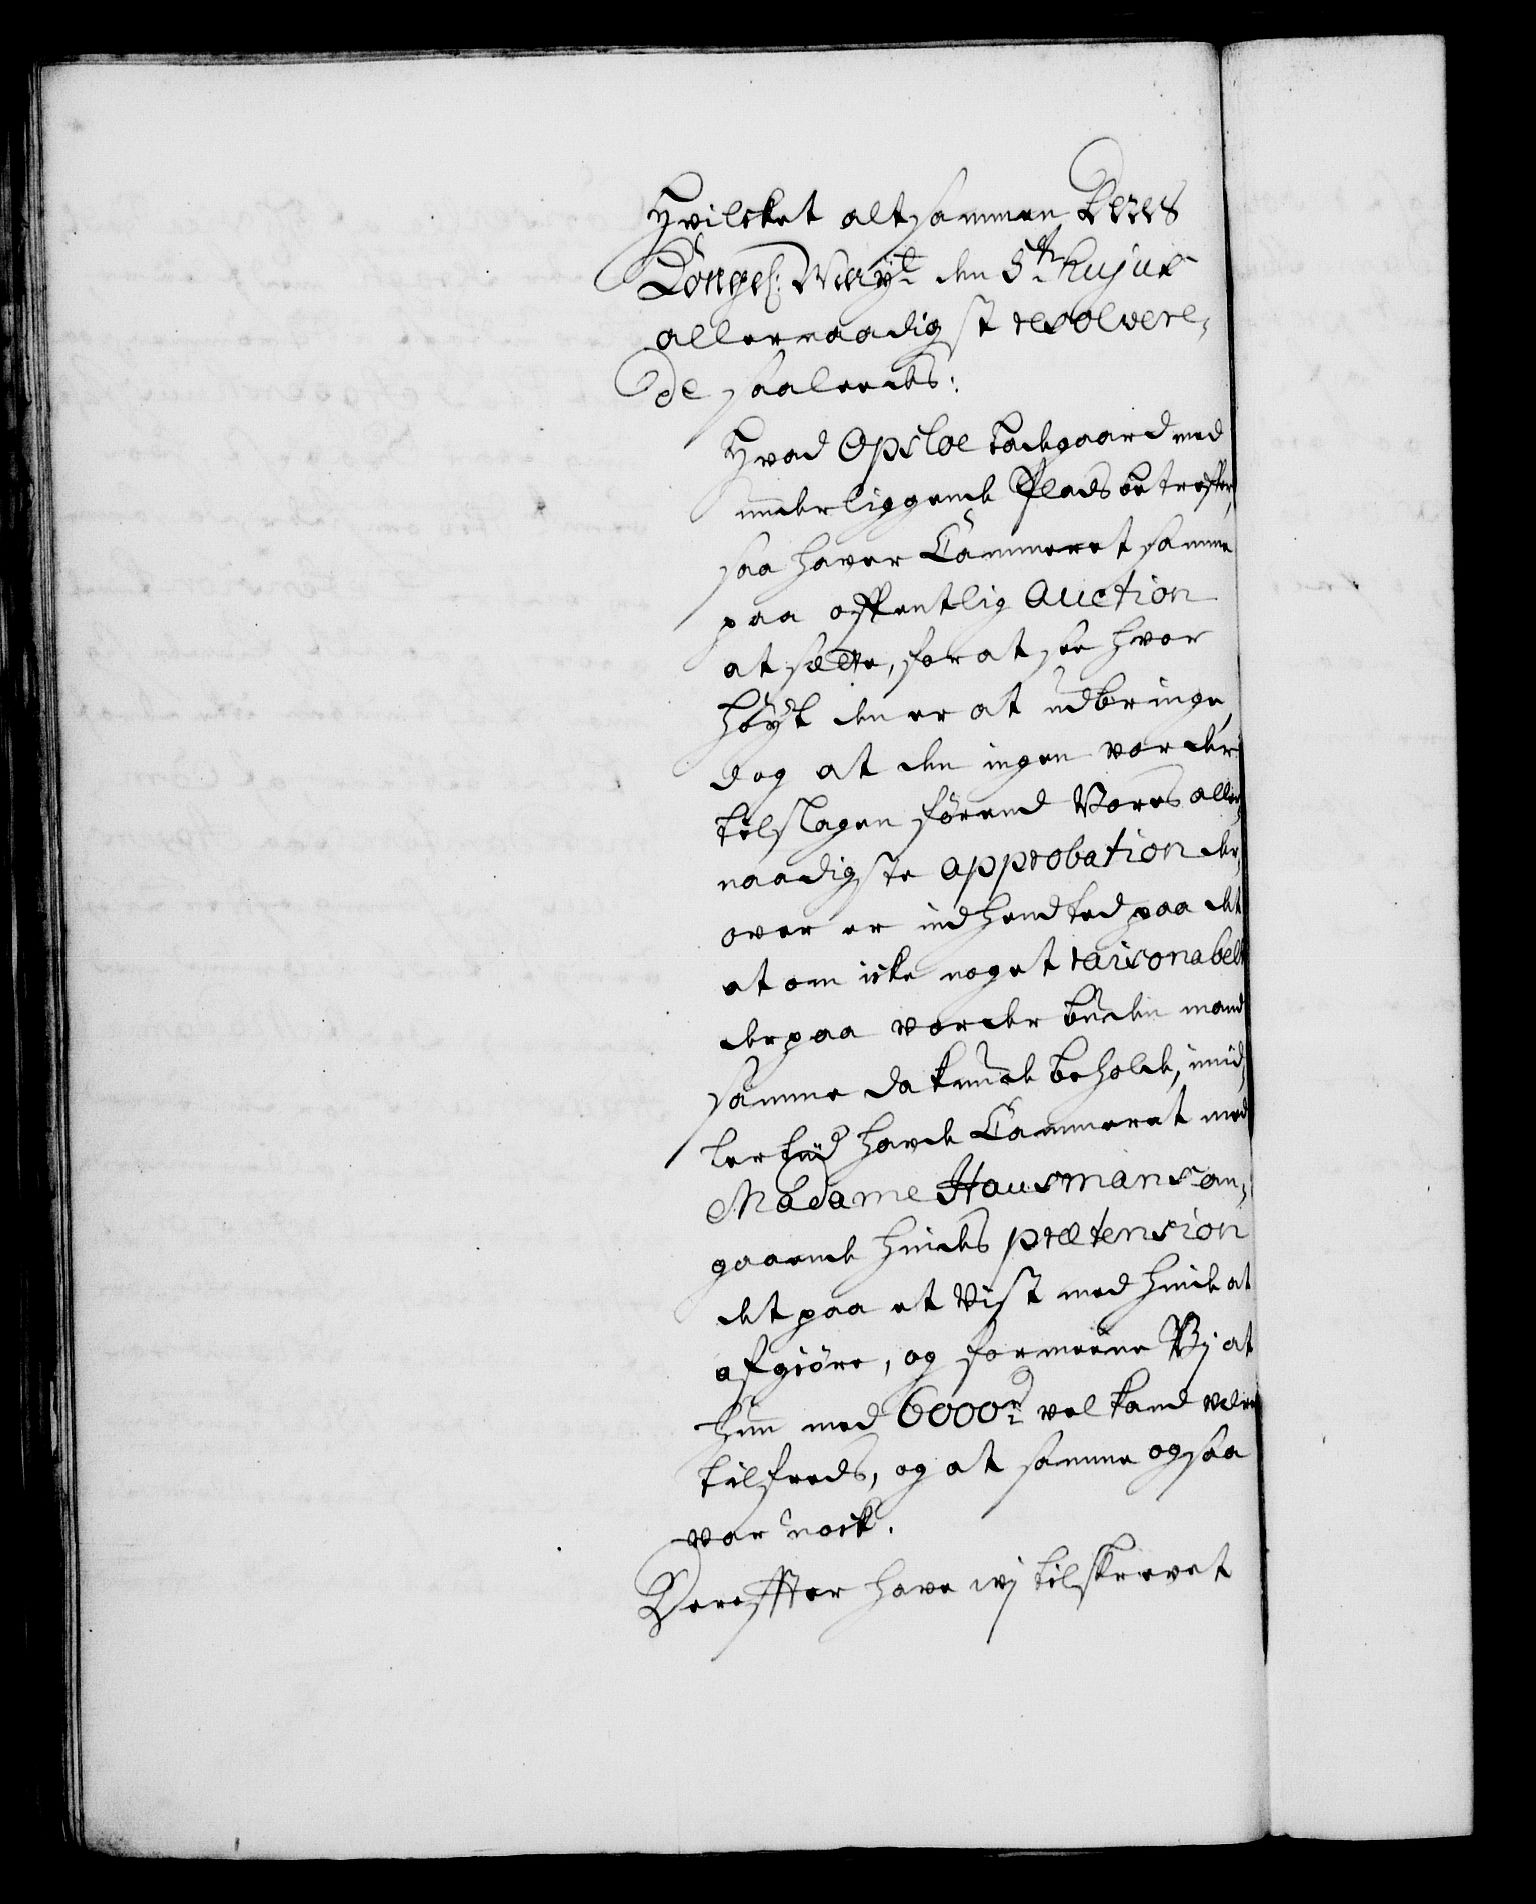 Hvilcket altsammen Deres
Kongel: May:t den 5:te hujus
allernaadigst resolvere-
de saaledes:
Hvad Opsloe Ladegaard med
underliggende Plads betreffer,
saa haver Cammeret samme
paa offentlig Auction
at sætte, for at see hvor
høyt den er at udbringe,
dog at den ingen vorder
tilslagen førend Vores aller-
naadigste approbation der-
over er indhendted paa det
at om icke noget raisonabelt
derpaa vorder buden mand
samme da kunde beholde, imid-
lertiid havde Cammeret med
Madame Hausmans an-
gaaende hindes prætension
det paa et Vist med hinde at
afgiøre, og formeene Vj at
hun med 6000 rd vel kand være
tilfreds, og at samme ogsaa
var nock.
Dereffter have wj tilskrevet